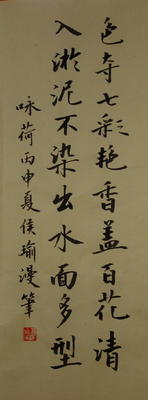 色夺七彩艳香盖百花清
入淤泥不染出水面多型
咏荷丙申夏侯瑜漫筆